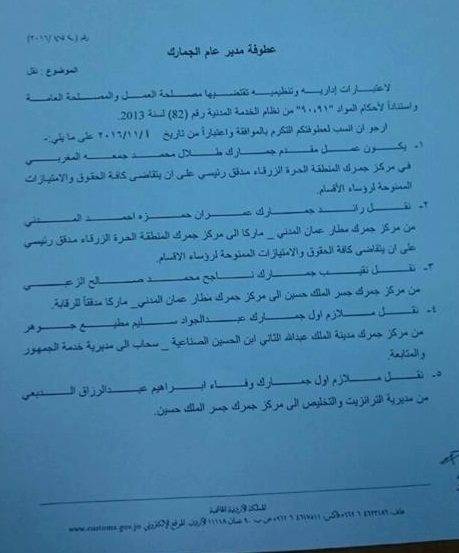 عطوفة مدير عام الجمارك
الموضوع : نقل
لاعتبارات إدارية وتنظيمية تقتضيها مصلحة العمل والمصلحة العامة
واستناداً لأحكام المواد "٩٠،٩١" من نظام الخدمة المدنية رقم (82) لسنة 2013.
ارجو ان انسب لعطوفتكم التكرم بالموافقة واعتباراً من تاريخ ٢٠١٦/١١/٤ على ما يلي:-
١- يكون عمل مقدم جمارك طلال محمد جمعه المغربي
في مركز جمرك المنطقة الحرة الزرقاء مدقق رئيسي على ان يتقاضى كافة الحقوق والامتيازات
الممنوحة لرؤساء الأقسام.
٢- نقل رائد جمارك عمران حمزه احمد المدني
من مركز جمرك مطار عمان المدني _ ماركا الى مركز جمرك المنطقة الحرة الزرقاء مدقق رئيسي
على ان يتقاضى كافة الحقوق والامتيازات الممنوحة لرؤساء الاقسام.
٣- نقل نقيب جمارك ناجح محمد صالح الزعبي
من مركز جمرك جسر الملك حسين الى مركز جمرك مطار عمان المدني_ ماركا مدققاً للرقابة.
٤- نقل ملازم اول جمارك عبدالجواد سليم مطيع جوهر
من مركز جمرك مدينة الملك عبدالله الثاني ابن الحسين الصناعية _ سحاب الى مديرية خدمة الجمهور
والمتابعة.
٥- نقل ملازم اول جمارك وفاء ابراهيم عبدالرزاق
من مديرية الترانزيت والتخليص الى مركز جمرك جسر الملك حسين.
المملكة الأردنية الهاشمية
عمان ١١١١٨ الأردن، الموقع الإلكتروني www.customs.gov.jo